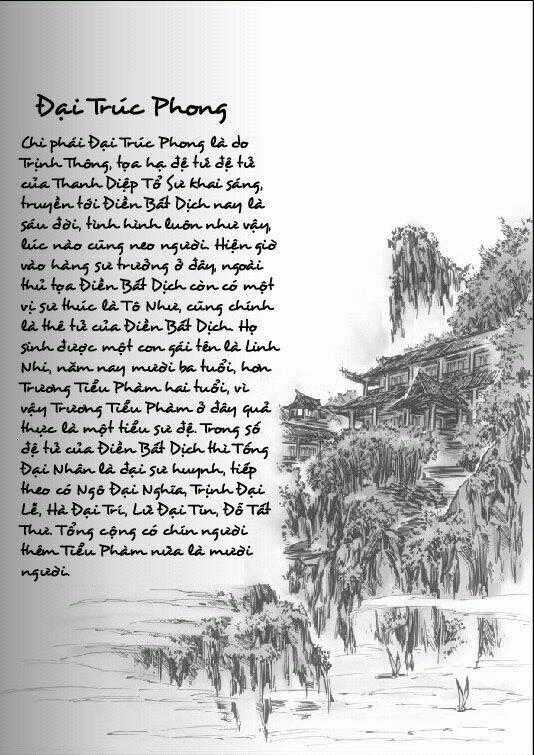 Đại Trúc Phong
Chi phái Đại Trúc Phong là do
Trịnh Thông, tọa hạ đệ tử đệ tử
của Thanh Diệp Tổ Sư khai sáng,
truyền tới Điền Bất Dịch nay là
sáu đời, tình hình luôn như vậy,
lúc nào cũng neo người. Hiện giờ
vào hàng sư trưởng ở đây, ngoài
thủ tọa Điền Bất Dịch còn có một
vị sư thúc là Tô Như, cũng chính
là thê tử của Điền Bất Dịch. Họ
sinh được một con gái tên là Linh
Nhi, năm nay mười ba tuổi, hơn
Trương Tiểu Phàm hai tuổi, vì
vậy Trương Tiểu Phàm ở đây quả
thực là một tiểu sư đệ. Trong số
đệ tử của Điền Bất Dịch thì Tống
Đại Nhân là đại sư huynh, tiếp
theo có Ngô Đại Nghĩa, Trịnh Đại
Lễ, Hà Đại Trí, Lữ Đại Tín, Đỗ Tất
Thư. Tổng cộng có chín người
thêm Tiểu Phàm nữa là mười
người.